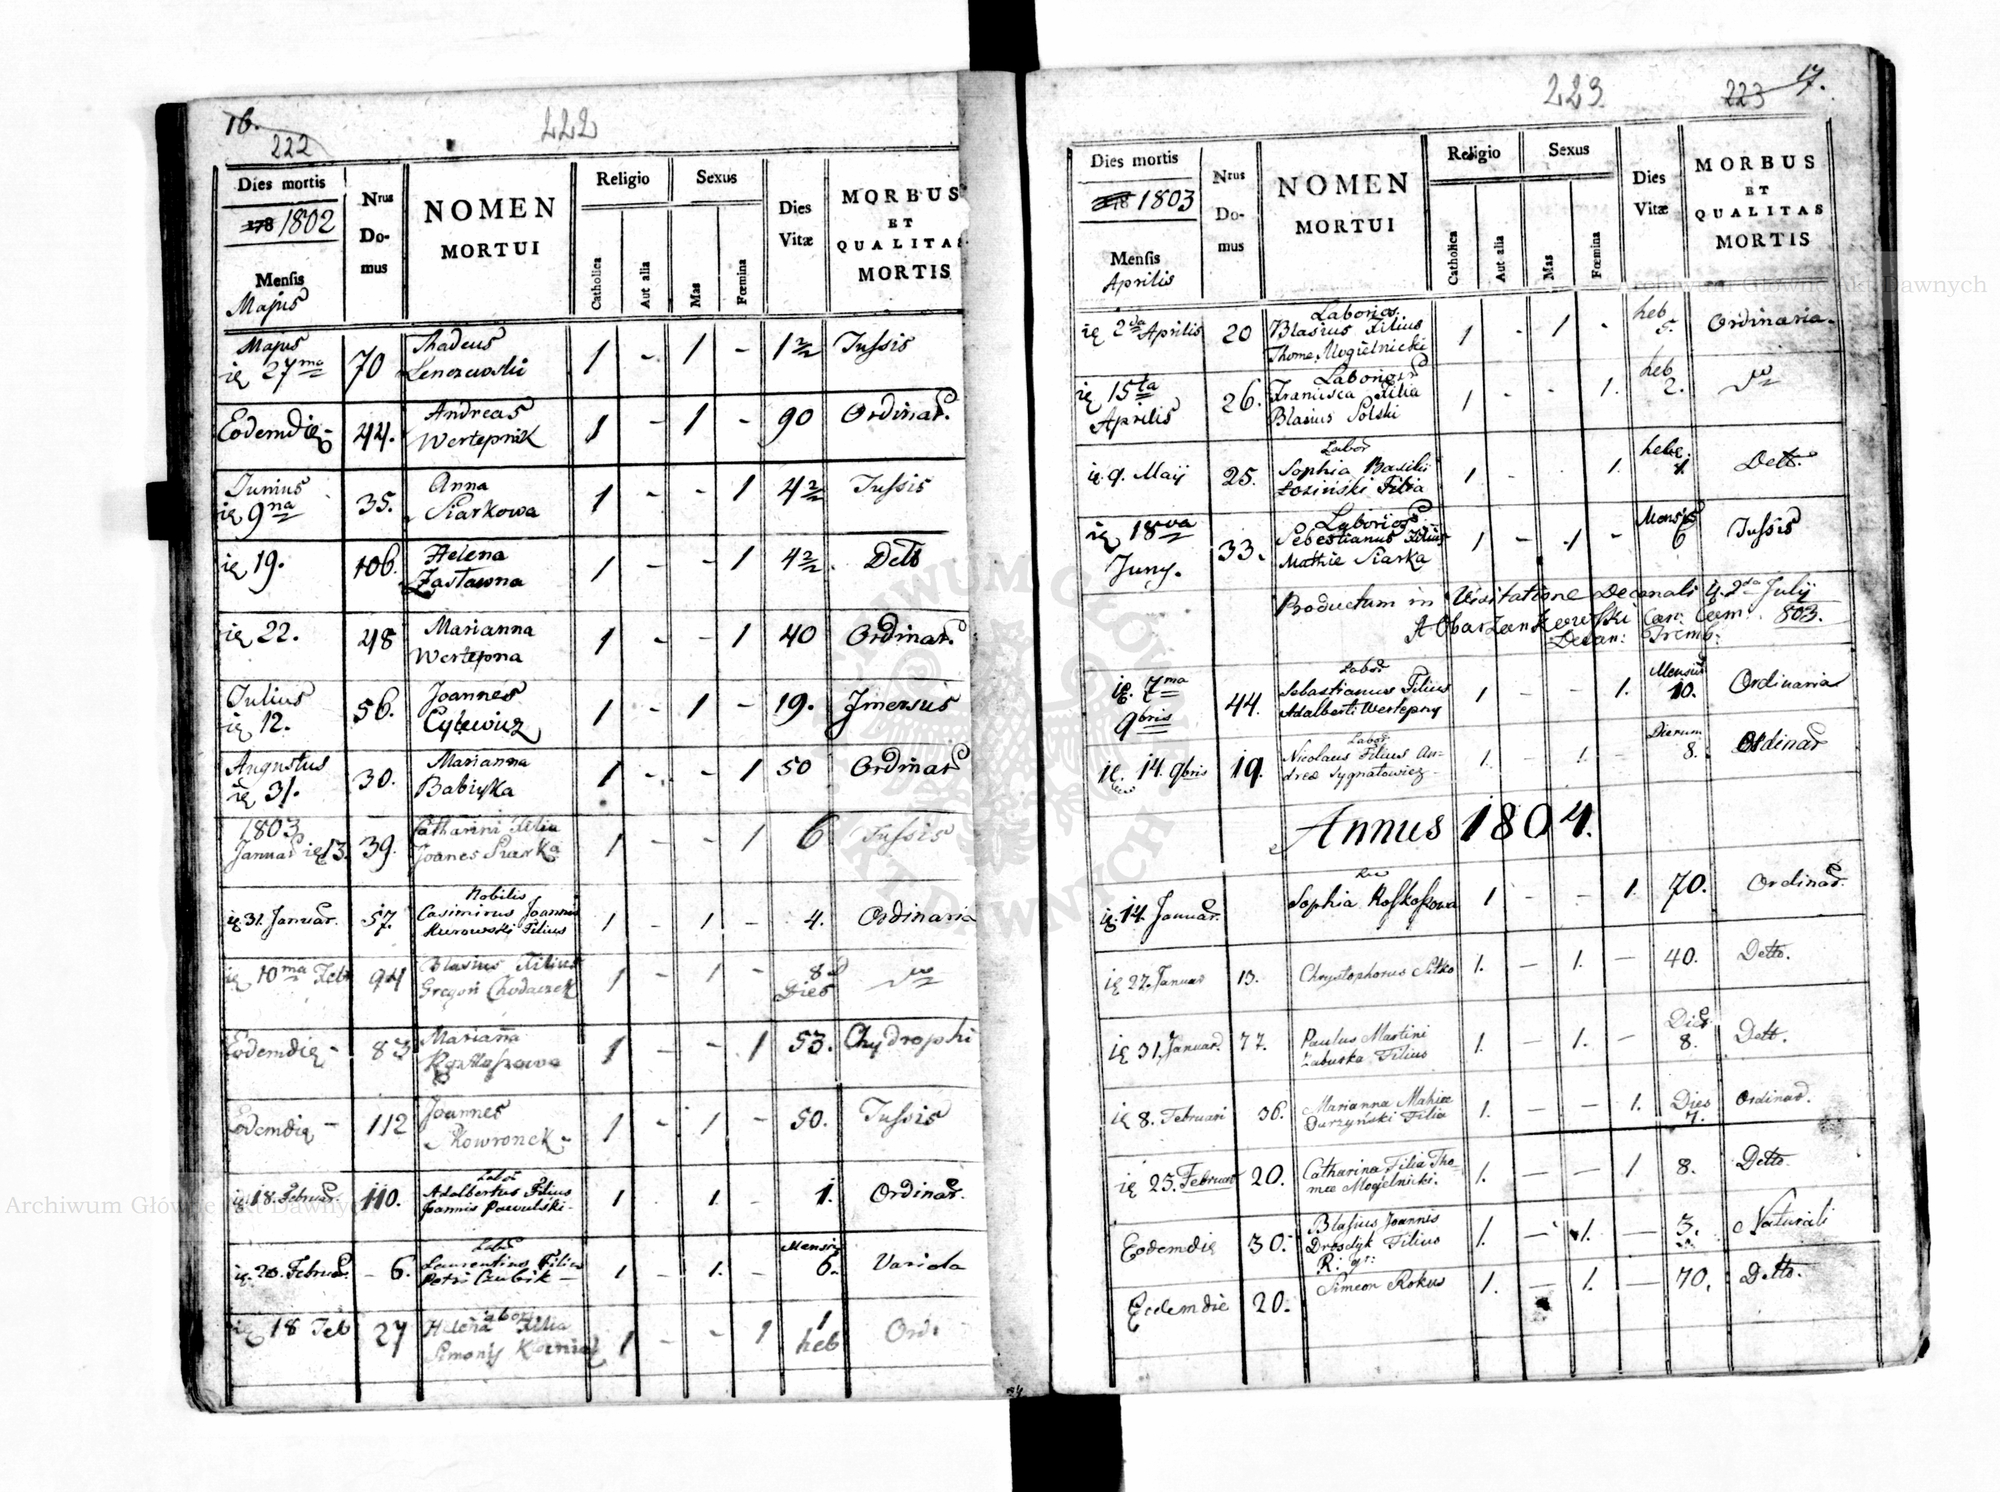 16.
222
222
Dies mortis
178 1802
Mensis
Majus
Nrus
Do-
mus
NOMEN
MORTUI
Religio
Catholica
Aut alia
Sexus
Mas
Fœmina
Dies
Vitæ
MORBUS
ET
QUALITAS
MORTIS
Majus
ię 27ma 70 Thadeus
Lenczewski 1 - 1 - 1 2/2 Tussis
Eodemdię - 44. Andreas
Wertepnik 1 - 1 - 90 Ordinar.
Junius
ię 9na 35. Anna
Siarkowa 1 - - 1 4 2/2 Tussis
ię 19. 106. Helena
Zastawna 1 - - 1 4 2/2 Dett
ię 22. 48 Marianna
Wertepna 1 - - 1 40 Ordinar.
Julius
ię 12. 56. Joannes
Cylewicz 1 - 1 - 19. Jmersus
Augustus
ię 31. 30. Marianna
Babiyka 1 - - 1 50 Ordinar
1803
Januar ię 13. 39. Catharini Filia
Joanes Siarka 1 - - 1 6 Tussis
ię 31. Januar. 57. Nobilis
Casimirus Joannis
Kurowski Filius 1 - 1. - 4. Ordinaria
ię 10ma Feb 94 Blasius Filius
Gregori Chodaczek 1 - 1 - 8
Dies
Eodemdię - 83 Marianna
1 - - 1 53. Chydropki
Eodemdię - 112 Joannes
Skowronek - 1 - 1 - 50. Tussis
ię 18. Februar. 110. Labor
Adalbertus Filius
Joannis Pawulski - 1 . 1. - 1. Ordinar.
ię. 20. Februar. - 6. Labor
Laurentius Filius
Petri Cubik - 1 - 1. - Mensis
6. Variola
ię 18 Feb 27 Labor
Helena Filia
Simonis 1 - - 1 1
heb Ord.
223
223 17.
Dies mortis
178 1803
Mensis
Aprilis
Nrus
Do-
mus
NOMEN
MORTUI
Religio
Catholica
Aut alia
Sexus
Mas
Fœmina
Dies
Vitæ
MORBUS
ET
QUALITAS
MORTIS
ię 2da Aprilis 20 Laborios.
Blasius Filius
Thome Mogielnicki 1 - 1 - heb
5. Ordinaria.
ię 15ta
Aprilis 26. Laborios
Francisca Filia
Blasius Solski 1 - - 1. heb
2.
ię. 9. Maij 25. Labor
Sophia Basilii
Łoziński Filia 1 - . 1. hebd.
Dett.
ię 18va
Juny. 33. Laborios
Sebestianus Filius
Mathie Siarka 1 - 1 - Mensis
6 Tussis
Productum in Visitatione Decanali d. 2da Julij
A Obarzankowski Can: Cem: 803.
Decan: Tremb:
ię. 7ma
9bris 44. Labor
Sebastianus Filius
Adalberti Wertepny 1 - - 1. Mensiu
10. Ordinaria
ię. 14. 9bris 19. Labor
Nicolaus Filius An-
drea Sygnatowicz - 1. - 1. - Dierum
8. Ordinar
Annus 1804.
ię. 14. Januar. Sophia Koskoszowa 1 - - 1. 70. Ordinar.
ię 27. Januar 13. Chrystophorus Sitko 1. - 1. - 40. Detto.
ię 31. Januar. 77. Paulus Martini
Zaburka Filius 1. - 1. - Dier
8. Dett.
ię 8. Februari 36. Marianna Mahiæ
Durzyński Filia 1. - - 1. Dies
7. Ordinar.
ię 25. Februar 20. Catharina Filia Tho-
mæ Mogielnicki. 1. - - 1 8. Detto.
Eodemdię 30. Blasius Joannis
Drosdyk Filius 1. - 1. - 3. Naturali
Eodemdie 20. R: gr:
Simeon Rokus 1. - 1. - 70. Detto.
Archiwum Główne Akt Dawnych
Archiwum Główne Akt Dawnych
ARCHIWUM GŁÓWNE AKT DAWNYCH